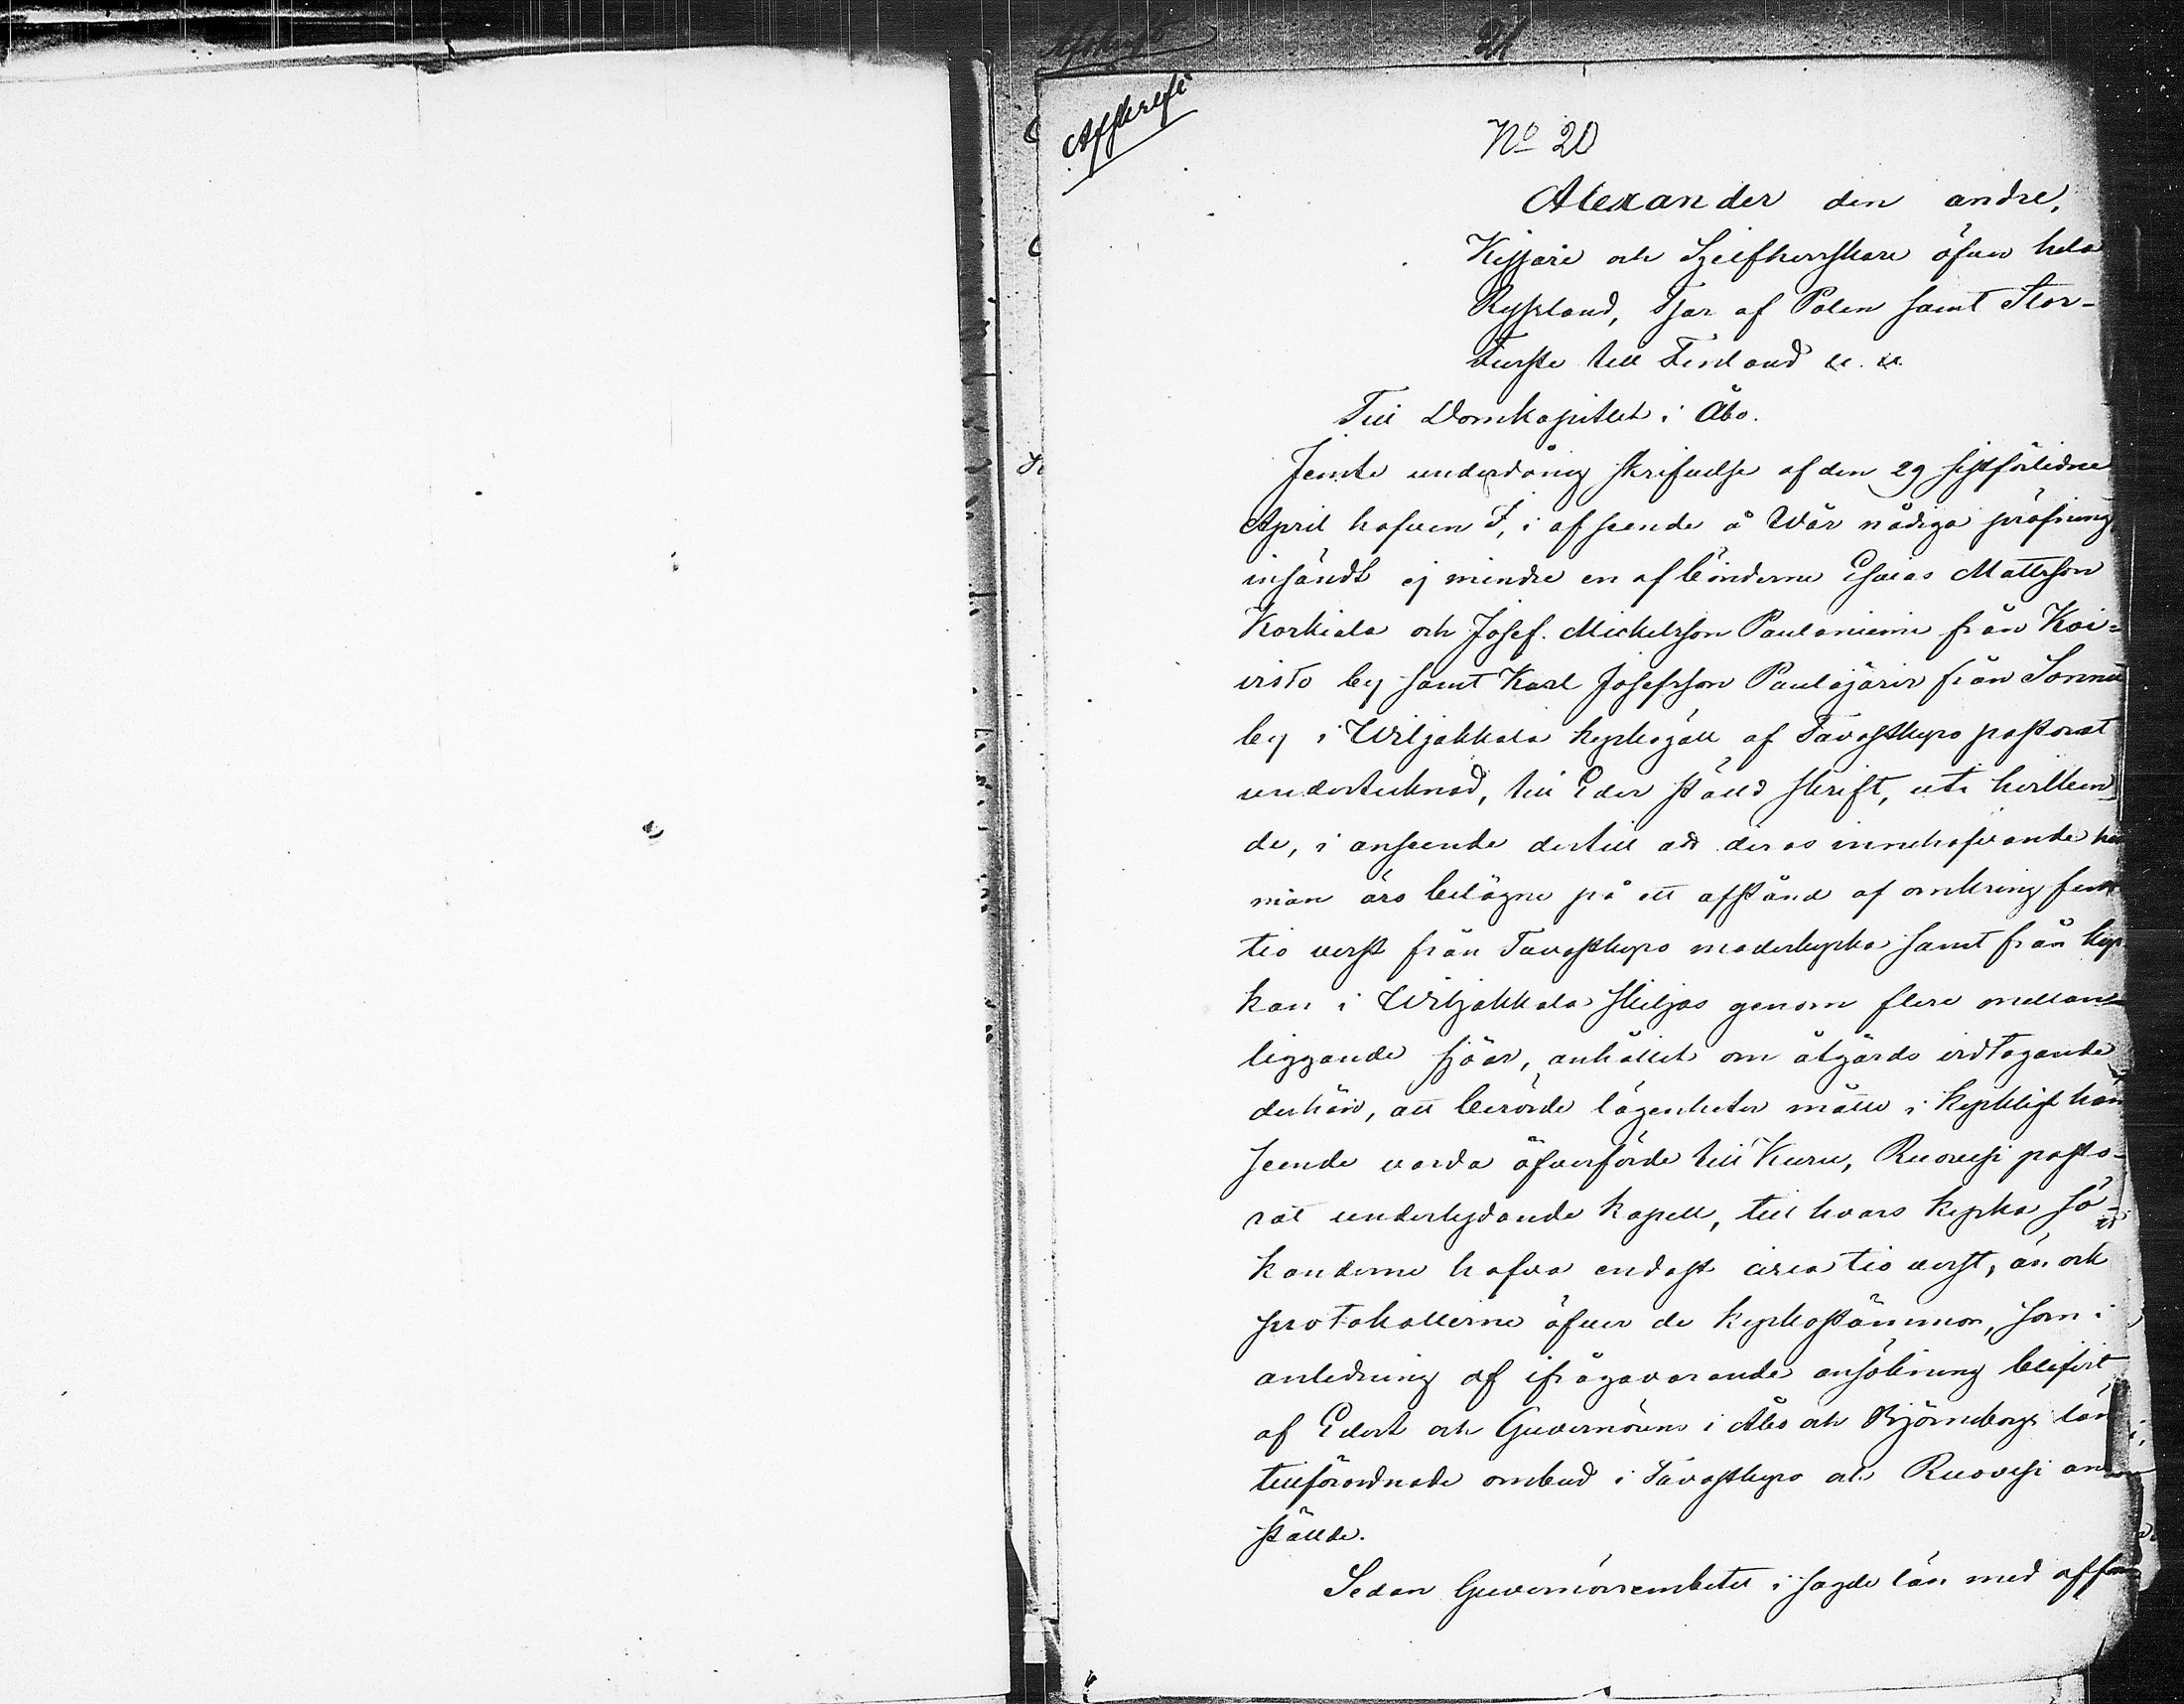 21
Afskrift
No 20
Alexander den andre,
Kejsare och Sjelfherrskare öfver hela
Ryssland, Tsar af Polen samt Stor-
Furste till Finland &. &.
Till Domkapitlet i Åbo.
Jemte underdånig skrifvelse af den 29 sistförlidne
April hafven I, i afseende å Wår nådiga pröfning
insändt ej mindre en af bönderne Esaias Mattsson
Korkiala och Josef Mickelsson Paulaniemi från Koi-
visto by samt Karl Josefsson Paulajärvi från
by i Wiljakkala kyrkogäll af Tavastkyro pastorat
undertecknad, till Eder ställd skrift, uti hvilken
de, i anseende dertill att deras innehafvande hem
man äro belägne på ett afstånd af omkring fem
tio verst från Tavastkyro moderkyrka samt från kyr
kan i Wiljakkala skiljas genom flere mellan-
liggande sjöar, anhållit om åtgärds vidtagande
derhän, att berörde lägenheter måtte i kyrkligt hän
seende varda öfverförde till Kuru, Ruovesi pasto-
rat underlydande kapell, till hvars kyrka sö-
kanderne hafva endast circa tio verst, än och
protokollerne öfver de kyrkostämmor, som i
anledning af ifrågavarande ansökning blifvit
af Edert och Guvernörens i Åbo och Björneborgs län
tillförordnade ombud i Tavastkyro och Ruovesi an
ställde.
Sedan Guvernörsembetet i sagde län med